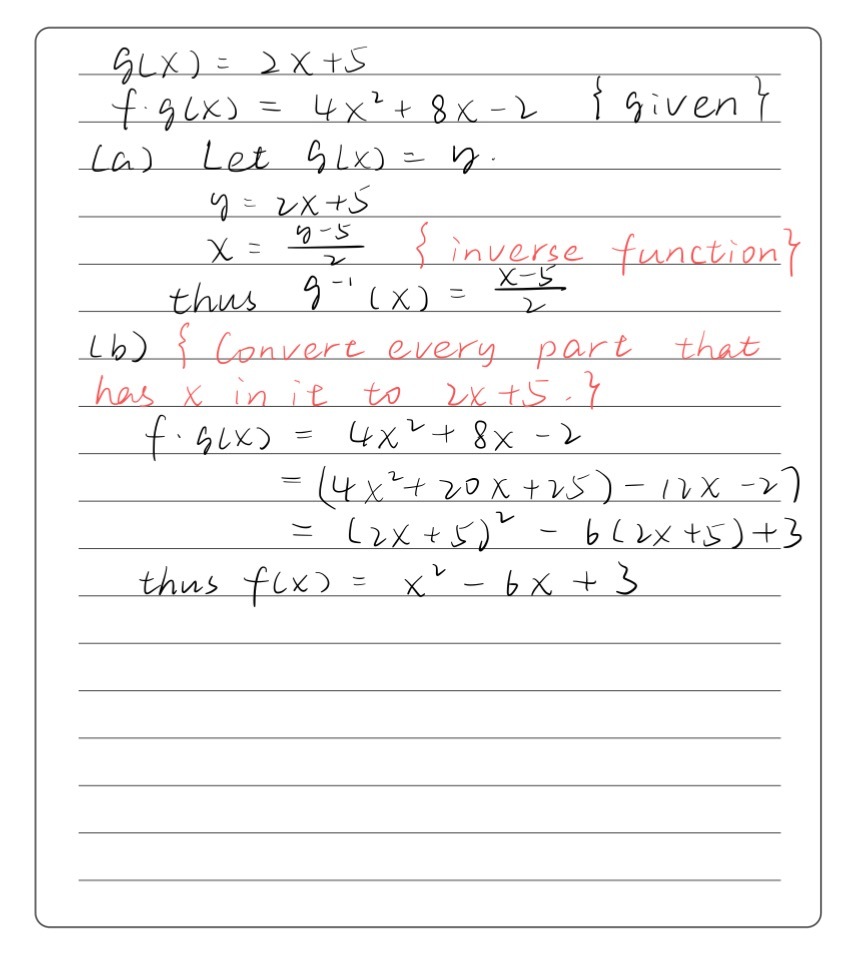 g(x) = 2x+5
f·g(x) = 4x² + 8x - 2 { given }
(a) Let g(x) = y.
y = 2x+5
x = \frac{y-5}{2} { inverse function}
thus g⁻¹(x) = \frac{x-5}{2}
(b) { Convert every part that
has x in it to 2x+5.}
f·g(x) = 4x² + 8x - 2
= (4x²+20x+25) - 12x - 27
= (2x+5)² - 6(2x+5)+3
thus f(x) = x² - 6x + 3